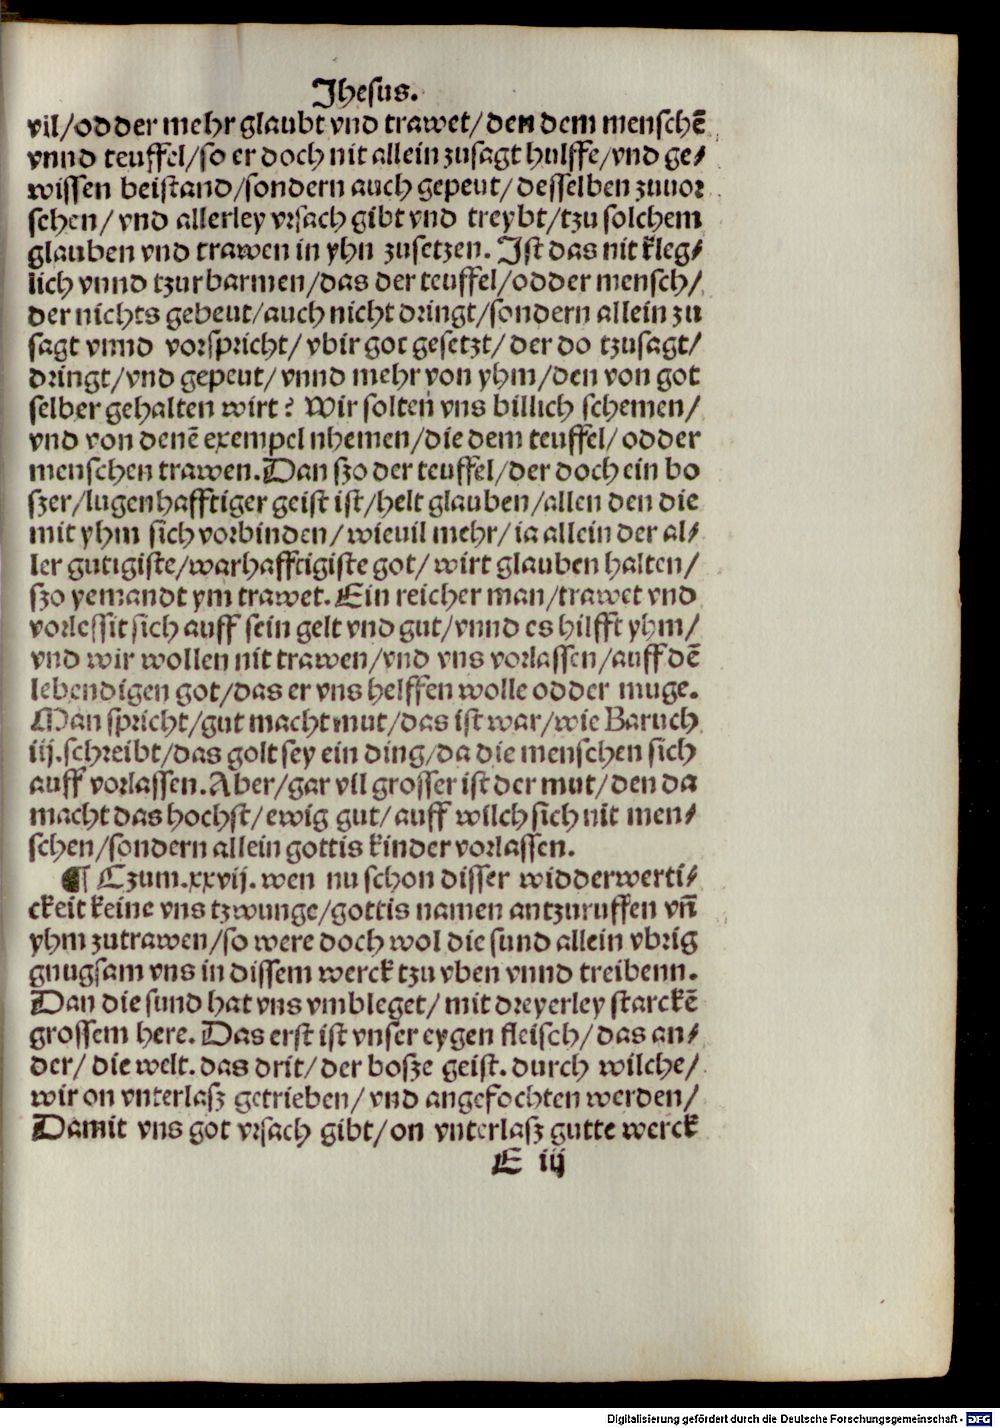 Jhesus.
vil/odder mehr glaubt vnd trawet/den dem menschē
vnnd teuffel/so er doch nit allein zusagt hulffe/vnd ge⸗
wissen beistand/sondern auch gepeut/desselben zuuor
schen/vnd allerley vrsach gibt vnd treybt/tzu solchem
glauben vnd trawen in yhn zusetzen. Ist das nit kleg⸗
lich vnnd tzurbarmen/das der teuffel/odder mensch/
der nichts gebeut/auch nicht dringt/sondern allein zu
sagt vnnd vorspricht/vbir got gesetzt/der do tzusagt/
dringt/vnd gepeut/vnnd mehr von yhm/den von got
selber gehalten wirt? Wir solten vns billich schemen/
vnd von denē exempel nhemen/die dem teuffel/odder
menschen trawen. Dan szo der teuffel/der doch ein bo
szer/lugenhafftiger geist ist/helt glauben/allen den die
mit yhm sich vorbinden/wieuil mehr/ia allein der al⸗
ler gutigiste/warhafftigiste got/wirt glauben halten/
szo yemandt ym trawet. Ein reicher man/trawet vnd
vorlessit sich auff sein gelt vnd gut/vnnd es hilfft yhm/
vnd wir wollen nit trawen/vnd vns vorlassen/auff dē
lebendigen got/das er vns helffen wolle odder muge.
Man spricht/gut macht mut/das ist war/wie Baruch
iij. schreibt/das golt sey ein ding/da die menschen sich
auff vorlassen. Aber/gar vil grosser ist der mut/den da
macht das hochst/ewig gut/auff wilch sich nit men⸗
schen/sondern allein gottis kinder vorlassen.
¶ Czum. xxvij. wen nu schon disser widderwerti⸗
ckeit keine vns tzwunge/gottis namen antzuruffen vn̄
yhm zutrawen/so were doch wol die sund allein vbrig
gnugsam vns in dissem werck tzu vben vnnd treibenn.
Dan die sund hat vns vmbleget/mit dreyerley starckē
grossem here. Das erst ist vnser eygen fleisch/das an⸗
der/die welt. das drit/der bosze geist. durch wilche/
wir on vnterlasz getrieben/vnd angefochten werden/
Damit vns got vrsach gibt/on vnterlasz gutte werck
E iij
Digitalisierung gefördert durch die Deutsche Forschungsgemeinschaft - DFG